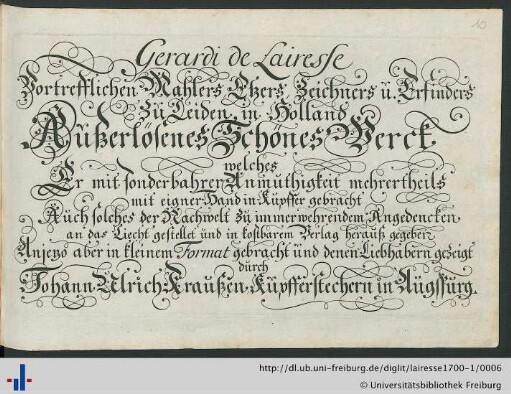 10
Gerardi de Lairesse
Vortrefflichen Mahlers, Etzers, Zeichners u. Erfinders
Zu Leiden in Holland
Außerlösenes Schönes Werck.
welches
Er mit sonderbahrer Anmüthigkeit mehrertheils
mit eigner Hand in Kupffer gebracht
Auch solches der Nachwelt zu immerwehrendem Angedencken
an das Liecht gestellet und in kostbarem Verlag herauß gegeben
Anjezo aber in kleinem Format gebracht und denen Liebhabern gezeigt
durch
Johann Ulrich Kraußen, Kupfferstechern in Augspurg.
http://dl.ub.uni-freiburg.de/diglit/lairesse1700-1/0006
© Universitätsbibliothek Freiburg